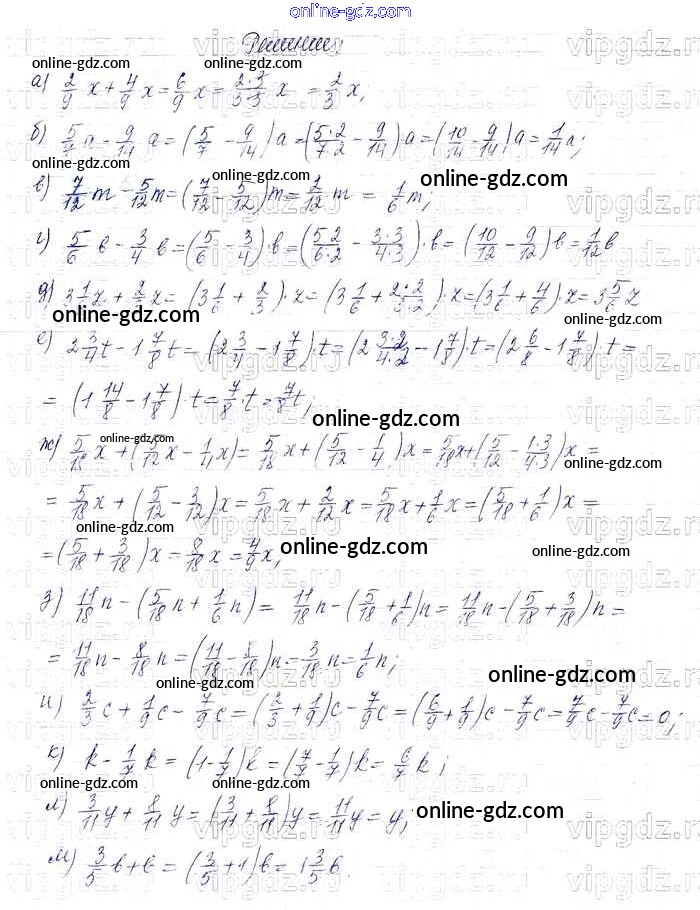 online-gdz.com
Решение:
online-gdz.com online-gdz.com
а) 2/9 x + 4/9 x = 6/9 x = 2·3/3·3 x = 2/3 x,
online-gdz.com online-gdz.com
б) 5/7 a - 9/14 a = (5/7 - 9/14) a = (5·2/7·2 - 9/14) a = (10/14 - 9/14) a = 1/14 a;
online-gdz.com
в) 7/12 m - 5/12 m = (7/12 - 5/12) m = 2/12 m = 1/6 m;
online-gdz.com
г) 5/6 в - 3/4 в = (5/6 - 3/4)·в = (5·2/6·2 - 3·3/4·3)·в = (10/12 - 9/12) в = 1/12 в
online-gdz.com
д) 3 1/6 z + 2/3 z = (3 1/6 + 2/3)·z = (3 1/6 + 2·2/3·2)·z = (3 1/6 + 4/6)·z = 3 5/6 z
online-gdz.com online-gdz.com
е) 2 3/4 t - 1 7/8 t = (2 3/4 - 1 7/8)·t = (2 3·2/4·2 - 1 7/8)·t = (2 6/8 - 1 7/8)·t =
= (1 14/8 - 1 7/8)·t = 7/8·t = 7/8 t;
online-gdz.com
online-gdz.com
ж) 5/18 x + (5/12 x - 1/4 x) = 5/18 x + (5/12 - 1/4) x = 5/18 x + (5/12 - 1·3/4·3) x =
online-gdz.com
= 5/18 x + (5/12 - 3/12) x = 5/18 x + 2/12 x = 5/18 x + 1/6 x = (5/18 + 1/6) x =
online-gdz.com
= (5/18 + 3/18) x = 8/18 x = 4/9 x,
online-gdz.com online-gdz.com
з) 11/18 n - (5/18 n + 1/6 n) = 11/18 n - (5/18 + 1/6) n = 11/18 n - (5/18 + 3/18) n =
online-gdz.com
= 11/18 n - 8/18 n = (11/18 - 8/18) n = 3/18 n = 1/6 n;
online-gdz.com online-gdz.com
и) 2/3 c + 1/9 c - 7/9 c = (2/3 + 1/9) c - 7/9 c = (6/9 + 1/9) c - 7/9 c = 7/9 c - 7/9 c = 0;
к) k - 1/7 k = (1 - 1/7) k = (7/7 - 1/7) k = 6/7 k;
online-gdz.com online-gdz.com
л) 3/11 y + 8/11 y = (3/11 + 8/11) y = 11/11 y = y;
online-gdz.com
online-gdz.com online-gdz.com
м) 3/5 в + в = (3/5 + 1) в = 1 3/5 в.